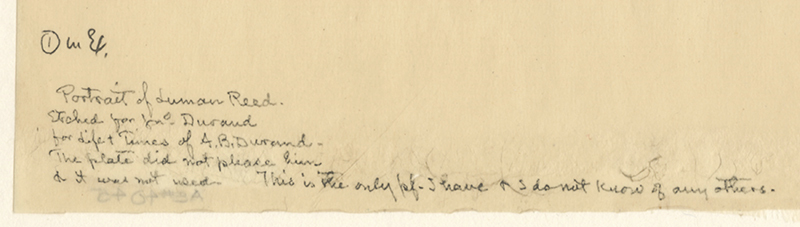 ① in Ex.
Portrait of Luman Reed.
Etched for Jno. Durand
for Life & Times of A. B. Durand -
The plate did not please him
& it was not used. This is the only pf. I have & I do not know of any others.